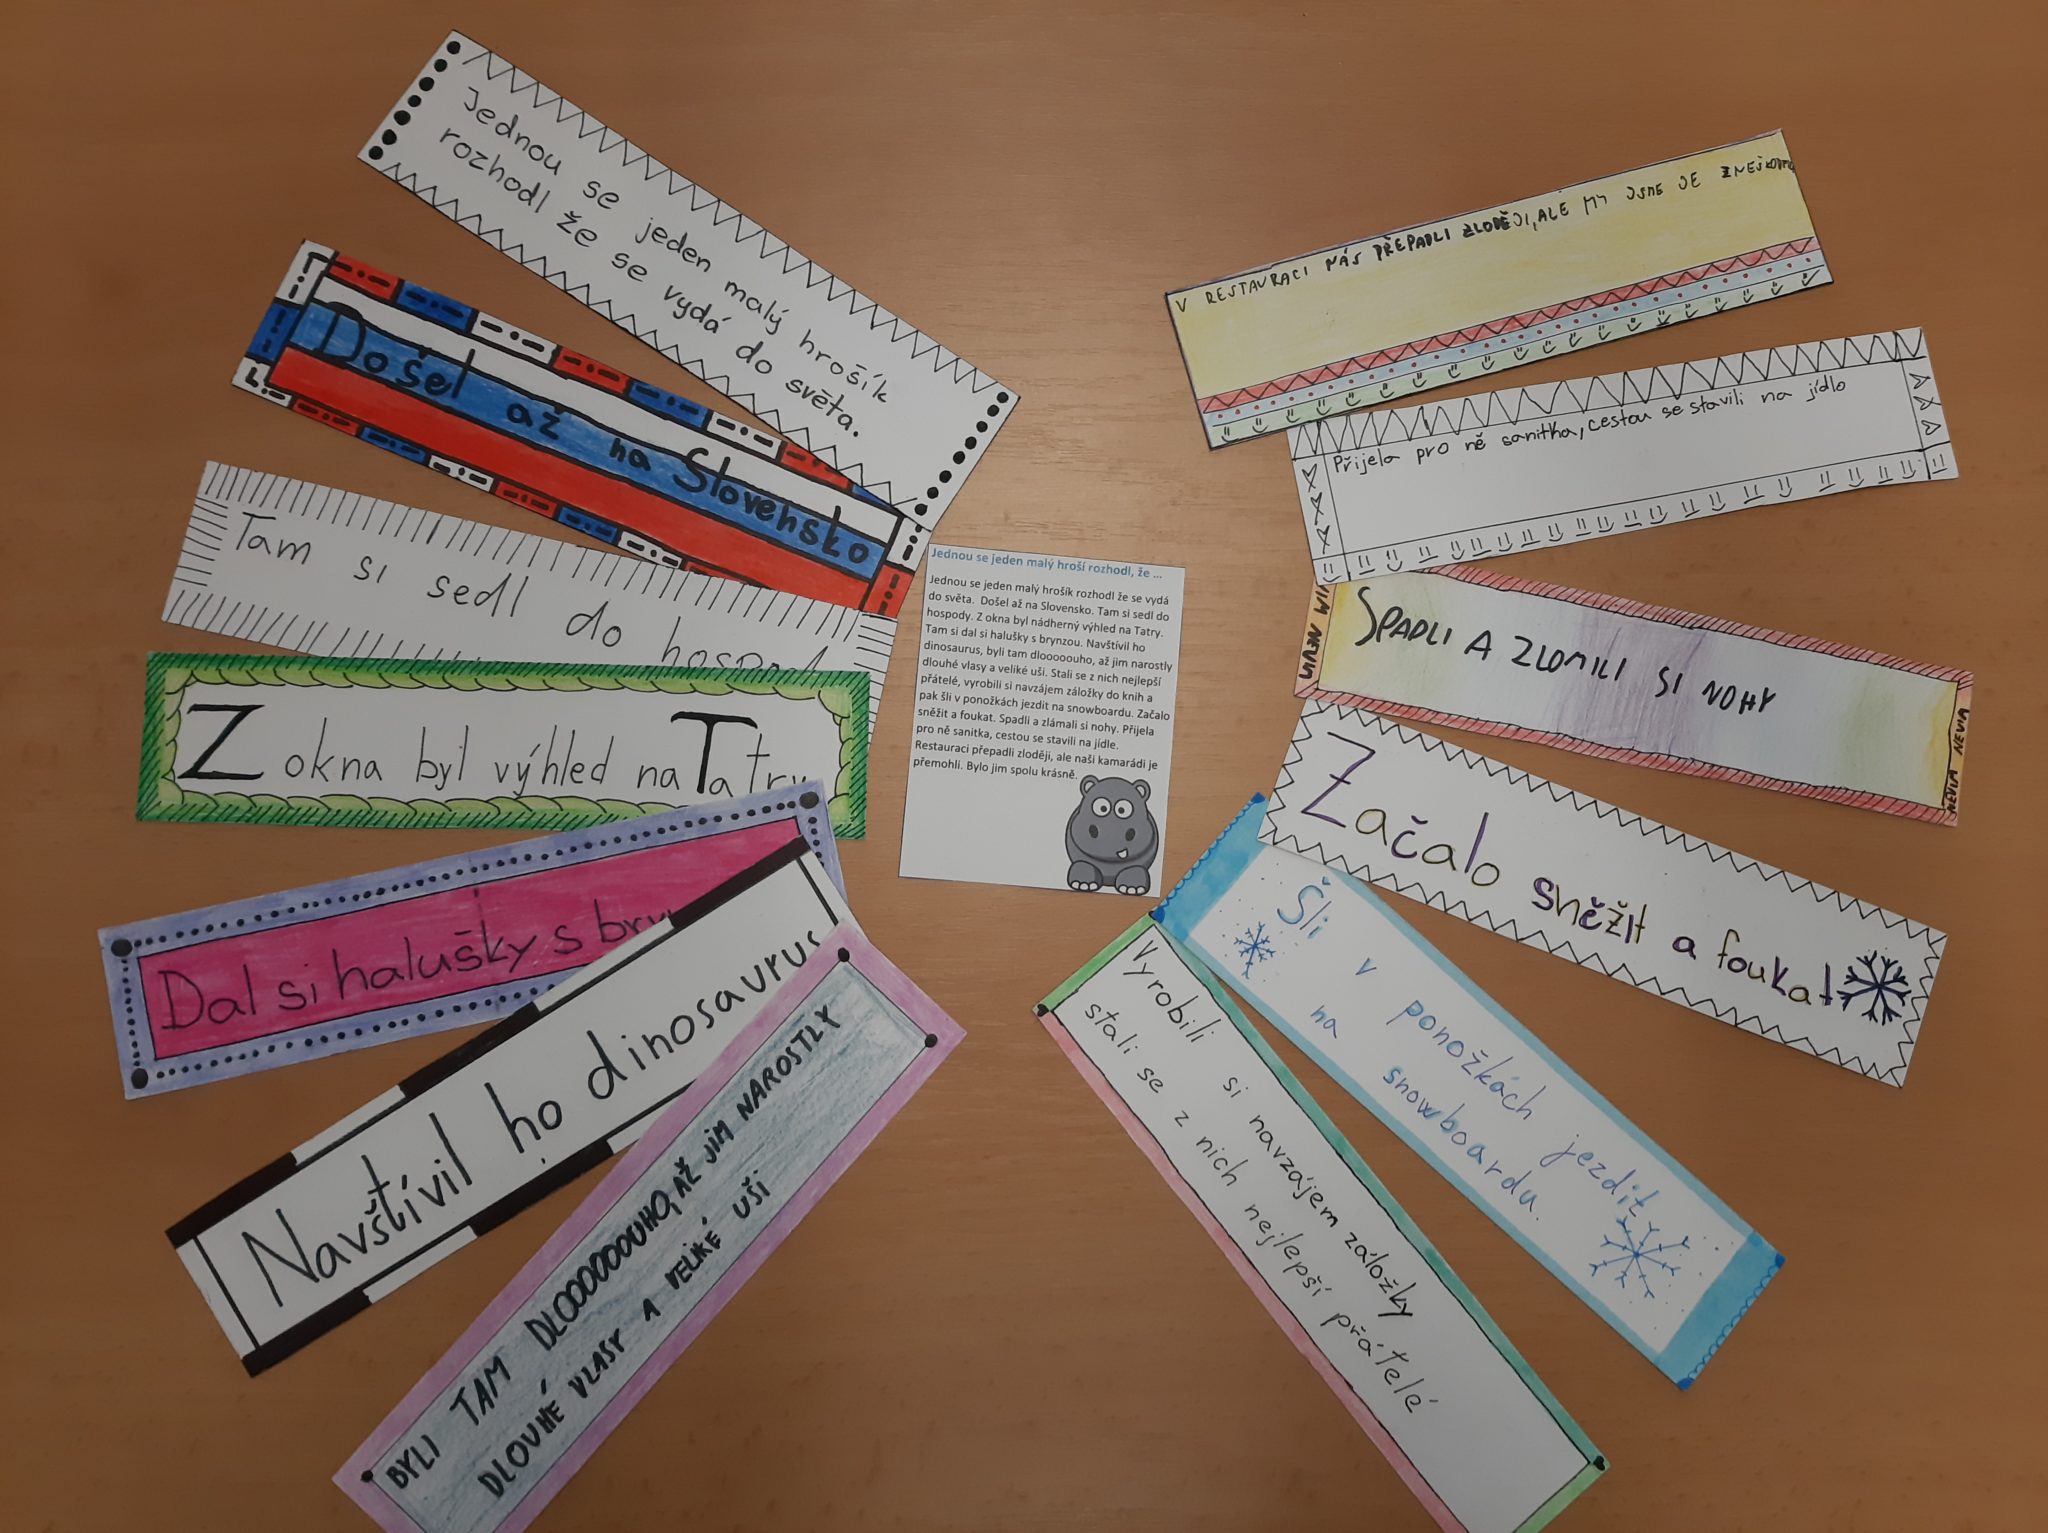 Jednou se jeden malý hrošík
rozhodl že se vydá do světa.
Došel až na Slovensko
Tam si sedl do
Z okna byl výhled na Tatry
Dal si halušky s
Navštívil ho dinosaurus
BYLI TAM DLOOOOOOUHO, AŽ JIM NAROSTLY
DLOUHÉ VLASY A VELIKÉ UŠI
Jednou se jeden malý hroší rozhodl, že ...
Jednou se jeden malý hrošík rozhodl že se vydá
do světa. Došel až na Slovensko. Tam si sedl do
hospody. Z okna byl nádherný výhled na Tatry.
Tam si dal si halušky s brynzou. Navštívil ho
dinosaurus, byli tam dlooooouho, až jim narostly
dlouhé vlasy a veliké uši. Stali se z nich nejlepší
přátelé, vyrobili si navzájem záložky do knih a
pak šli v ponožkách jezdit na snowboardu. Začalo
sněžit a foukat. Spadli a zlámali si nohy. Přijela
pro ně sanitka, cestou se stavili na jídle.
Restauraci přepadli zloději, ale naši kamarádi je
přemohli. Bylo jim spolu krásně.
V RESTAURACI NÁS PŘEPADLI ZLODĚJI, ALE MY JSME JE
Přijela pro ně sanitka, cestou se stavili na jídlo
SPADLI A ZLOMILI SI NOHY
NEVIM
NEVIM NEVIM
Začalo sněžit a foukat
Šli v ponožkách jezdit
na snowboardu.
Vyrobili si navzájem záložky
stali se z nich nejlepší přátelé